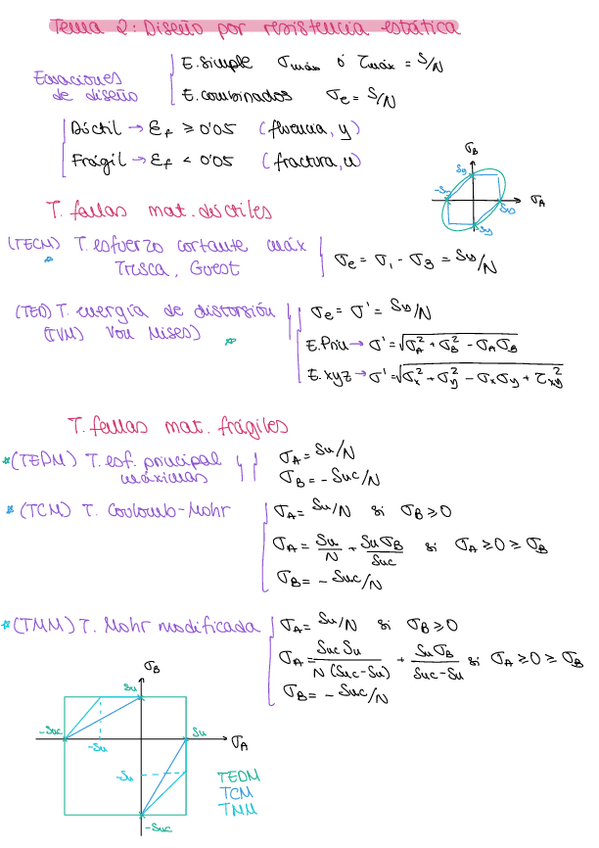 Tema 2: Diseño por resistencia estática
Ecuaciones de diseño
E. simple σmáx ó τmáx = S/N
E. combinados σe = S/N
Dúctil → εf ≥ 0'05 (fluencia, y)
Frágil → εf < 0'05 (fractura, u)
σB
Sy
-Sy
σA
Sy
-Sy
T. fallas mat. dúctiles
(TECM) T. esfuerzo cortante máx
Tresca, Guest
σe = σ1 - σ3 = Sy/N
(TED) T. energía de distorsión
(TVM) Von Mises)
σe = σ' = Sy/N
E. Prin → σ' = √σA² + σB² - σAσB
E. xyz → σ' = √σx² + σy² - σxσy + τxy²
T. fallas mat. frágiles
*(TEDM) T. esf. principal
máximas
σA = Su/N
σB = - Suc/N
*(TCM) T. Couloumb-Mohr
σA = Su/N si σB ≥ 0
σA = Su/N + SuσB/Suc si σA ≥ 0 ≥ σB
σB = - Suc/N
*(TMM) T. Mohr modificada
σA = Su/N si σB ≥ 0
σA = Suc Su/N (Suc-Su) + SuσB/Suc-Su si σA ≥ 0 ≥ σB
σB = - Suc/N
σB
Su
-Suc
-Su
Su
σA
-Su
-Suc
TEDM
TCM
TMM